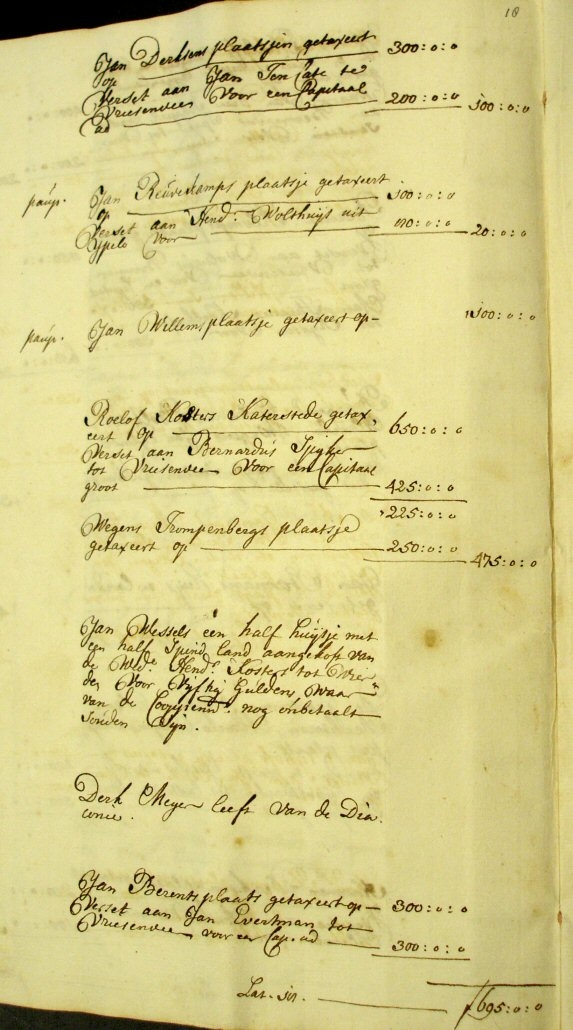 18
Jan Derksens plaatsjen getaxeert
op 300:0:0
Verset aan Jan Ten Cate te
Vriesenveen Voor een Capitaal
ad 200:0:0 100:0:0
paup. Jan Reuvekamps plaatsje getaxeert
op 100:0:0
Verset aan Hend: Wolthuijs uit
Ypelo Voor 80:0:0 20:0:0
paup. Jan Willems plaatsje getaxeert op 100:0:0
Roelof Kosters Katerstede getax
eert op 650:0:0
Verset aan Bernardus
tot Vriesenveen Voor een Capitaal
groot 425:0:0
225:0:0
Wegens Trompenbergs plaatsje
getaxeert op 250:0:0 475:0:0
Jan Wessels een half huijsje met
een half Spind land aangekoft van
de Wed.e Hend.k Kosters tot Vrie
den Voor Vyftig Guldens Waar
van de Cooppenn. nog onbetaalt
souden Sijn.
Derk Meyer leeft van de Dia
conie.
Jan Berents plaats getaxeert op 300:0:0
Verset aan Jan Evertman tot
Vriesenveen voor een Cap. ad 300:0:0
Lat. sis. 695:0:0